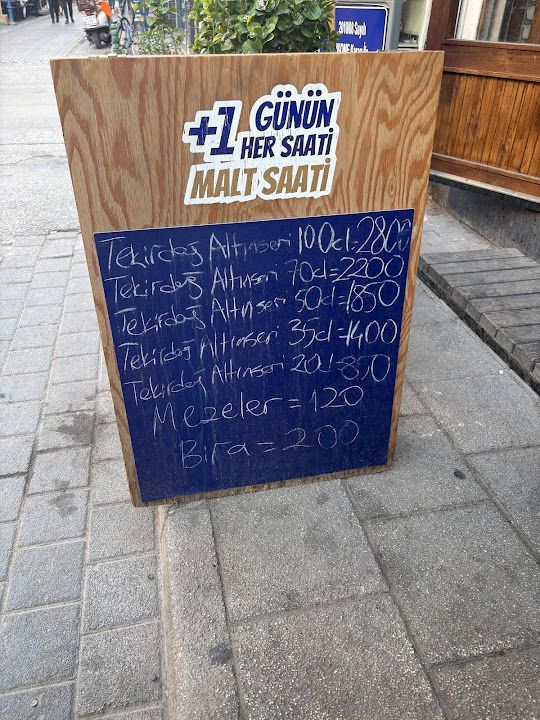 2010/08 Sayılı
+1 GÜNÜN
HER SAATİ
MALT SAATİ
Tekirdağ Altınseri 100cl=2800
Tekirdağ Altınseri 70cl=2200
Tekirdağ Altınseri 50cl=1850
Tekirdağ Altınseri 35cl=1400
Tekirdağ Altınseri 20cl=850
Mezeler=120
Bira=200